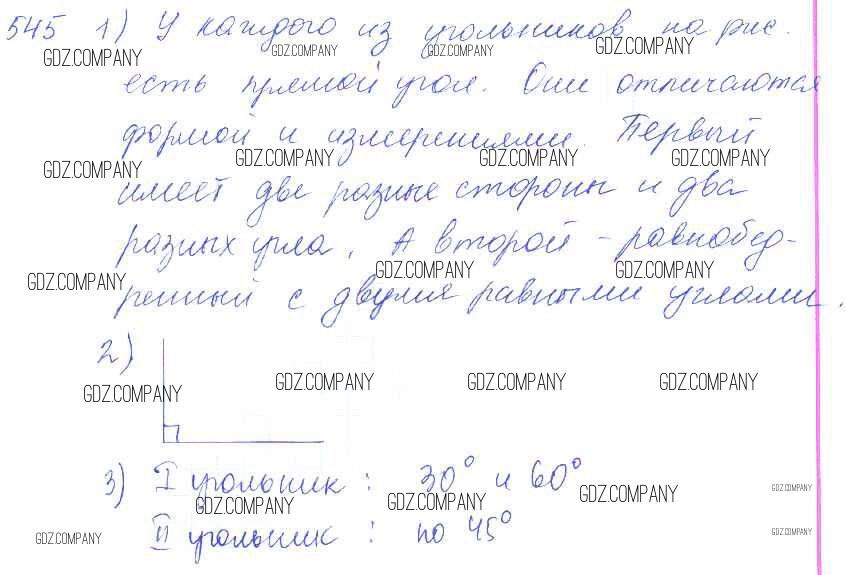 545 1) У каждого из угольников на рис.
GDZ.COMPANY GDZ.COMPANY GDZ.COMPANY GDZ.COMPANY
есть прямой угол. Они отличаются
формой и измерениями. Первый
GDZ.COMPANY GDZ.COMPANY GDZ.COMPANY GDZ.COMPANY
имеет две разные стороны и два
разных угла. А второй - равнобед-
GDZ.COMPANY GDZ.COMPANY GDZ.COMPANY
ренный с двумя равными углами.
2)
GDZ.COMPANY GDZ.COMPANY GDZ.COMPANY GDZ.COMPANY
3) I угольник : 30° и 60°
GDZ.COMPANY GDZ.COMPANY GDZ.COMPANY GDZ.COMPANY
II угольник : по 45°
GDZ.COMPANY GDZ.COMPANY